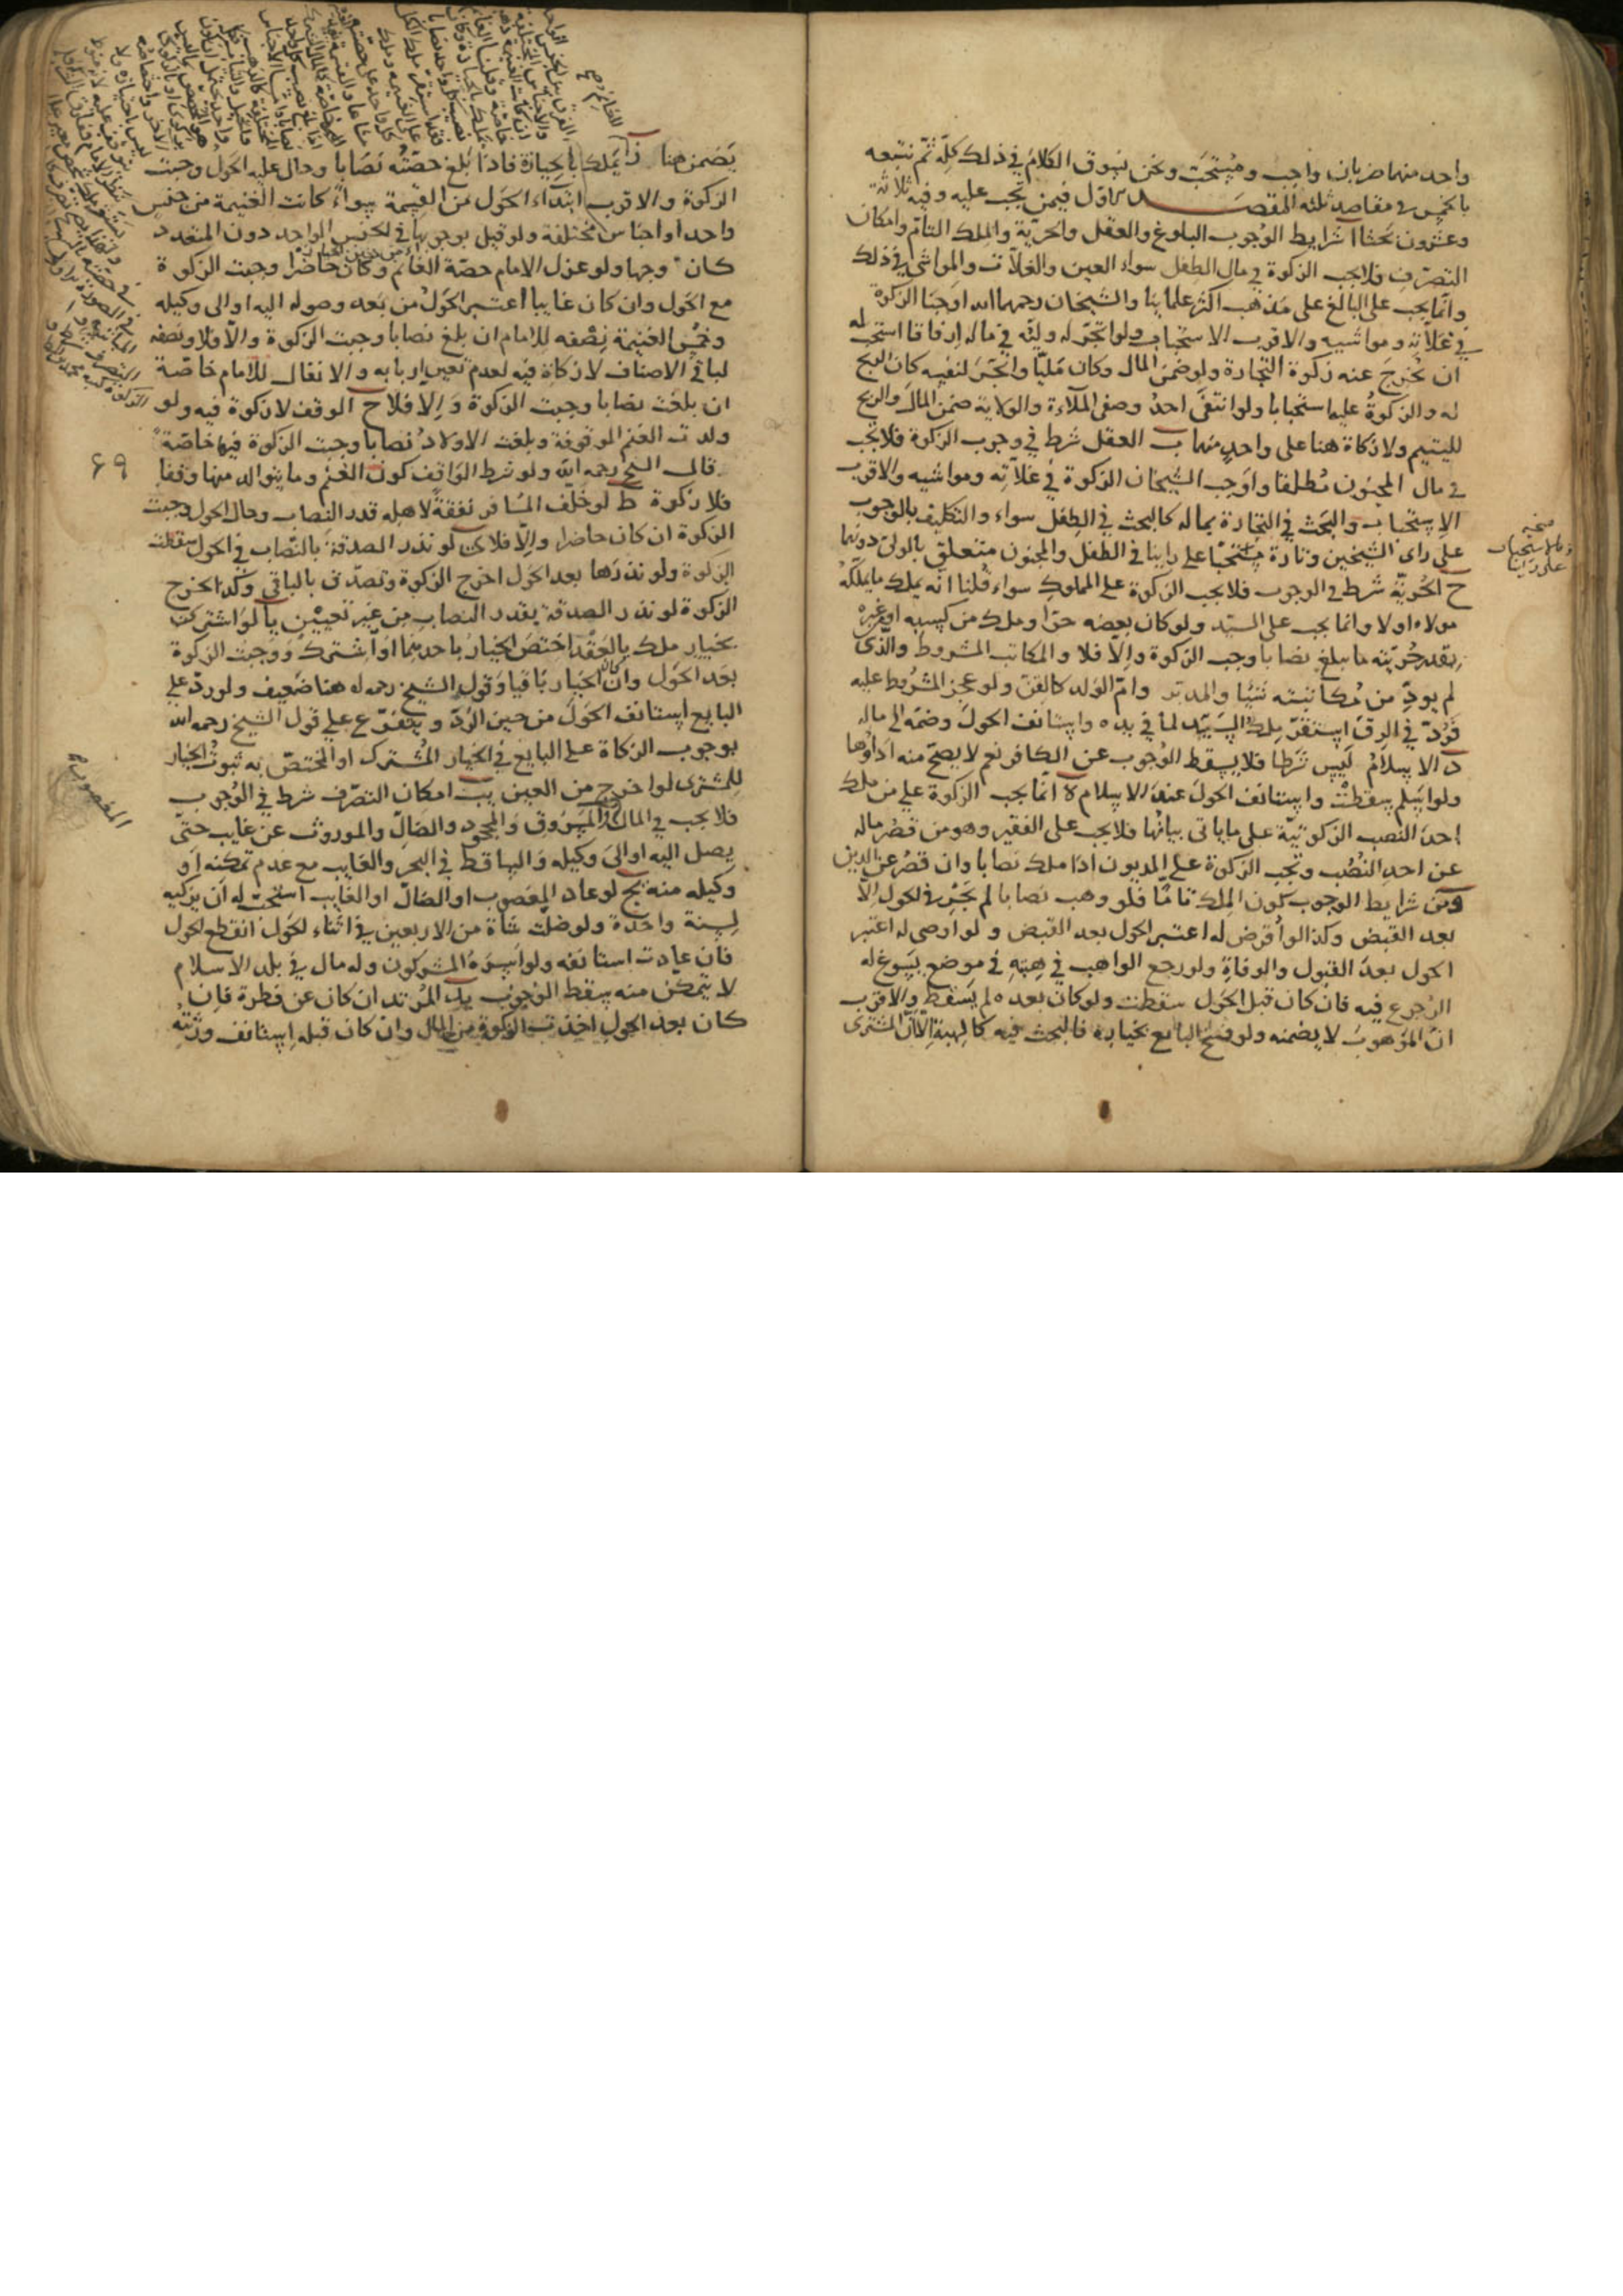 واحد منهما ضربان واجب ومستحب ونحن نسوق الكلام في ذلك كله ثم نتبعه
بالخمس في مقاصد ثلثة المقصد الاول فيمن تجب عليه وفيه ثلاثة
وعشرون بحثا ا شرايط الوجوب البلوغ والعقل والحرية والملك التام وامكان
التصرف فلا يجب الزكوة في مال الطفل سواء العين والغلات والمواشي في ذلك
وانما يجب على البالغ على مذهب اكثر علمائنا والشيخان رحمهما الله اوجبا الزكوة
في غلاته ومواشيه والاقرب الاستحباب ولو اتجر له وليه في ماله ارفاقا استحب له
ان يخرج عنه زكوة التجارة ولو ضمن المال وكان مليا واتجر لنفسه كان الربح
له والزكوة عليه استحبابا ولو انتفى احد وصفي الملاءة والولاية ضمن المال والربح
لليتيم ولا زكاة هنا على واحد منهما ب العقل شرط في وجوب الزكوة فلا يجب
في مال المجنون مطلقا واوجب الشيخان الزكوة في غلاته ومواشيه والاقرب
الاستحباب والبحث في التجارة بماله كالبحث في الطفل سواء والتكليف بالوجوب
على راي الشيخين وتارة مستحبا على راينا في الطفل والمجنون متعلق بالولي دونهما
ح الحرية شرط في الوجوب فلا يجب الزكوة على المملوك سواء قلنا انه يملك ما يملكه
مولاه اولا وانما يجب على السيد ولو كان بعضه حرا وملك من كسبه او غيره
بقدر حريته ما يبلغ نصابا وجب الزكوة والا فلا والمكاتب المشروط والذي
لم يود من مكاتبته شيئا والمدبر وام الولد كالقن ولو عجز المشروط عليه
فرد في الرق استقر ملك السيد لما في يده واستانف الحول وضمه الى ماله
د الاسلام ليس شرطا فلا يسقط الوجوب عن الكافر نعم لا يصح منه اداؤها
ولو اسلم سقطت واستانف الحول عند الاسلام ه انما يجب الزكوة على من ملك
احد النصب الزكوتية على ما ياتي بيانها فلا يجب على الفقير وهو من قصر ماله
عن احد النصب وتجب الزكوة على المديون اذا ملك نصابا وان قصر عن الدين
و من شرايط الوجوب كون الملك تاما فلو وهب نصابا لم يجر في الحول الا
بعد القبض وكذا لو اقرض له اعتبر الحول بعد القبض ولو اوصى له اعتبر
الحول بعد القبول والوفاة ولو رجع الواهب في هبته في موضع يسوغ له
الرجوع فيه فان كان قبل الحول سقطت ولو كان بعده لم يسقط والاقرب
ان الموهوب لا يضمنه ولو فسخ البايع بخياره فالبحث فيه كالهبة الا ان المشتري
على راينا
يضمن هنا ز يملك بالحيازة فاذا بلغ حصته نصابا وحال عليه الحول وجبت
الزكوة والاقرب ابتداء الحول من القسمة سواء كانت الغنيمة من جنس
واحد او اجناس مختلفة ولو قيل بوجوبها في الجنس الواحد دون المتعدد
كان وجها ولو عزل الامام حصة الغانم وكان حاضرا وجبت الزكوة
مع الحول وان كان غايبا اعتبر الحول من بعد وصوله اليه او الى وكيله
وخمس الغنيمة نصفه للامام ان بلغ نصابا وجبت الزكوة والا فلا ونصفه
لباقي الاصناف لا زكاة فيه لعدم تعين اربابه والانفال للامام خاصة
ان بلغت نصابا وجبت الزكوة والا فلا ح الوقف لا زكوة فيه ولو
ولدت الغنم الموقوفة وبلغت الاولاد نصابا وجبت الزكوة فيها خاصة
قال الشيخ رحمه الله ولو شرط الواقف كون الغنم وما يتوالد منها وقفا
فلا زكوة ط لو خلف المسافر نفقة لاهله قدر النصاب وحال الحول وجبت
الزكوة ان كان حاضرا والا فلا ي لو نذر الصدقة بالنصاب في الحول سقطت
الزكوة ولو نذرها بعد الحول اخرج الزكوة وتصدق بالباقي وكذا يخرج
الزكوة لو نذر الصدقة بقدر النصاب من غير تعيين يا لو اشترى
بخيار ملك بالعقد اختص الخيار باحدهما او اشترك ووجبت الزكوة
بعد الحول وان كان الخيار باقيا وقول الشيخ رحمه الله هنا ضعيف ولو رد على
البايع استانف الحول من حين الرد ويتفرع على قول الشيخ رحمه الله
بوجوب الزكاة على البايع في الخيار المشترك او المختص به ثبوت الخيار
للمشتري لو اخرج من العين يب امكان التصرف شرط في الوجوب
فلا يجب في المال المسروق والمجحود والضال والموروث عن غايب حتى
يصل اليه او الى وكيله والساقط في البحر والغايب مع عدم تمكنه او
وكيله منه يج لو عاد المغصوب او الضال او الغايب استحب له ان يزكيه
لسنة واحدة ولو ضلت شاة من الاربعين في اثناء الحول انقطع الحول
فان عادت استانفه ولو اسره المشركون وله مال في بلد الاسلام
لا يتمكن منه سقط الوجوب يد المرتد ان كان عن فطرة فان
كان بعد الحول اخذت الزكوة من المال وان كان قبله استانف ورثته
٤٩
المغصوب